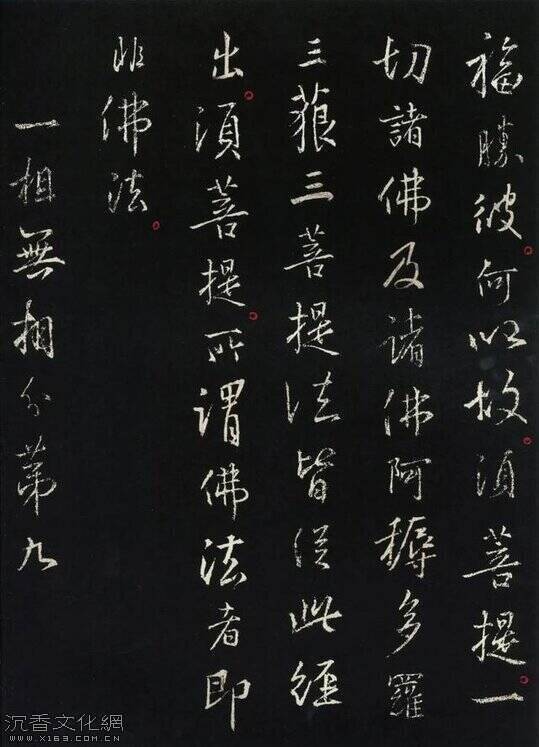 福勝彼何以故須菩提一
切諸佛及諸佛阿耨多羅
三藐三菩提法皆從此經
出須菩提所謂佛法者即
非佛法
一相無相分第九
沉香文化網
WWW.X169.COM.CN